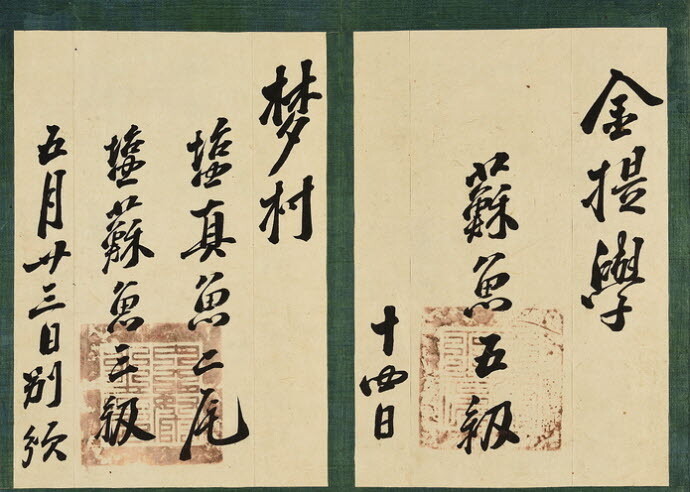 金提學
蘇魚五級
十四日
梦村
塩真魚二尾
塩蘇魚三級
五月廿三日別須